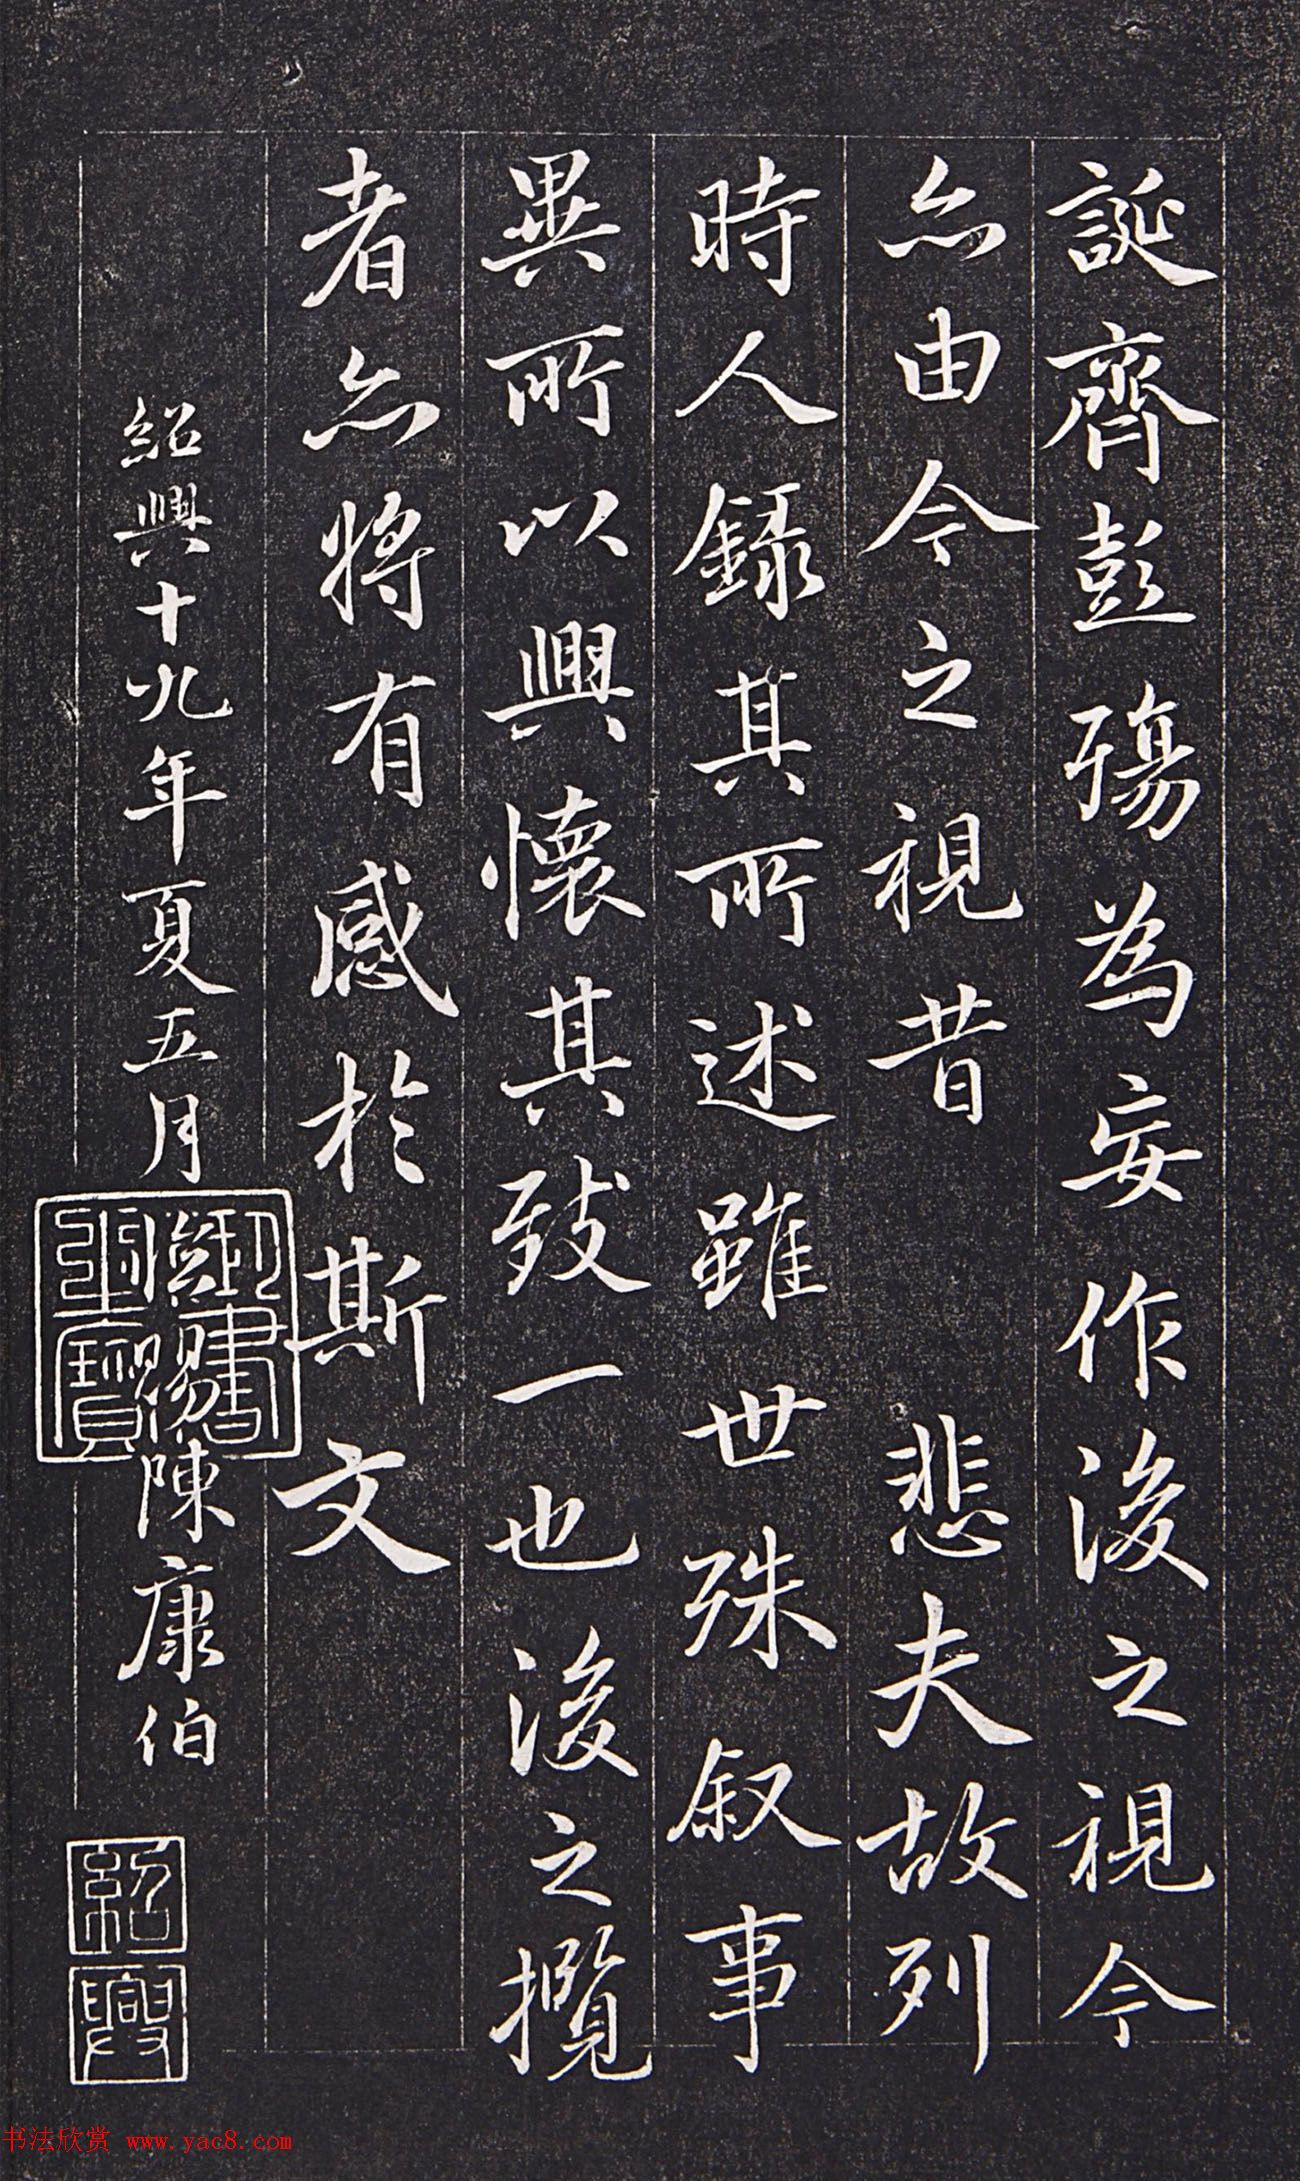 誕齊彭殤為妄作後之視今
亦由今之視昔 悲夫故列
時人錄其所述雖世殊叙事
異所以興懷其致一也後之攬
者亦將有感於斯文
紹興十九年夏五月 賜陳康伯
御書 寶
紹興
书法欣赏 www.yac8.com